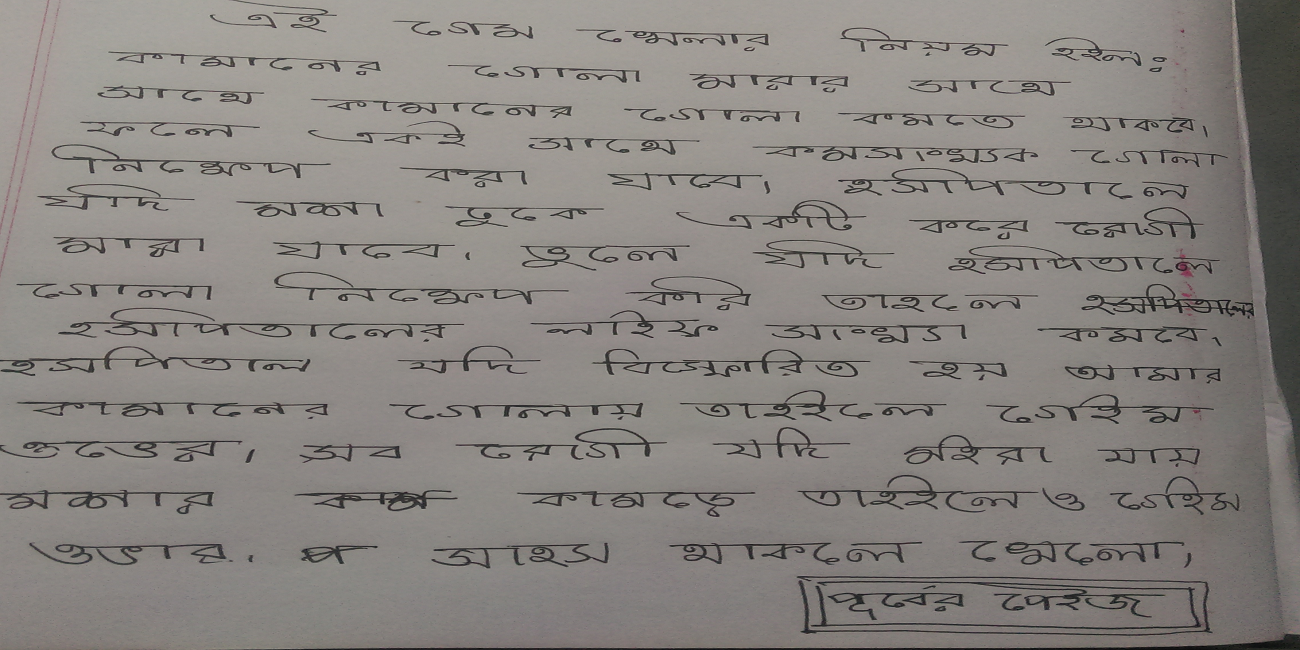 এই গেম খেলার নিয়ম হইল:
কামানের গোলা মারার সাথে
সাথে কামানের গোলা কমতে থাকবে।
ফলে একই সাথে কমসংখ্যক গোলা
নিক্ষেপ করা যাবে। হসপিতালে
যদি মশা ঢুকে একটি করে রোগী
মারা যাবে। ভুলে যদি হসপিতালে
গোলা নিক্ষেপ করি তাহলে হসপিতালের
হসপিতালের লাইফ সংখ্যা কমবে।
হসপিতাল যদি বিস্ফোরিত হয় আমার
কামানের গোলায় তাহইলে গেইম
ওভের। সব রোগী যদি মইরা যায়
মশার কামড়ে তাহইলে ও গেইম
ওভার। সাহস থাকলে খেলো।
পূর্বের পেইজ